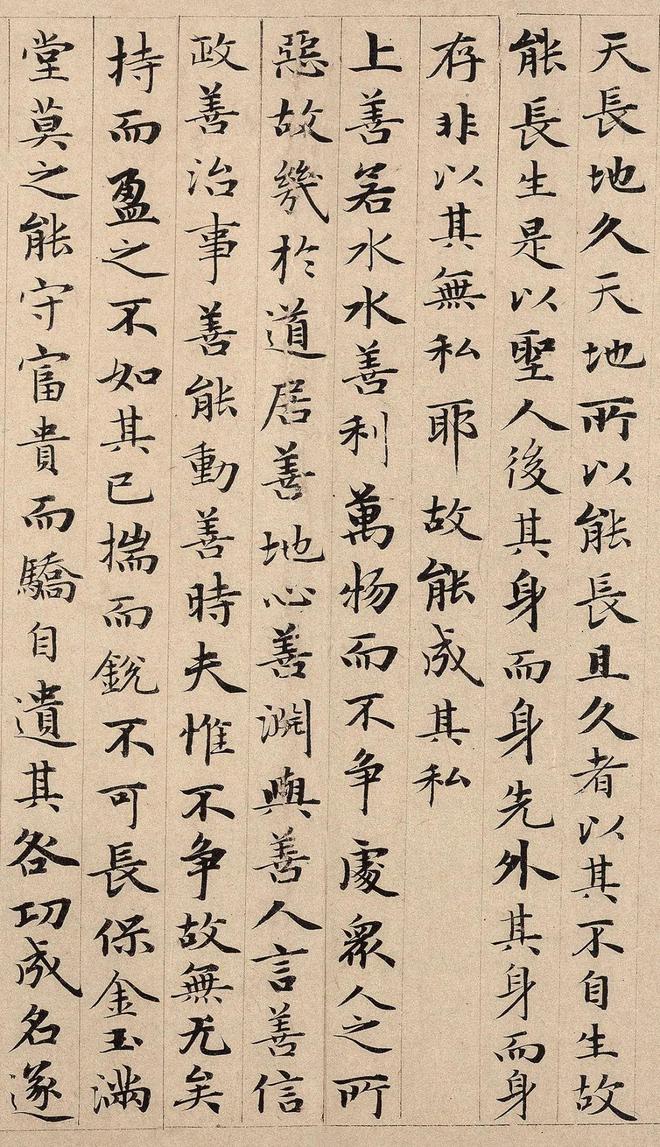 天長地久天地所以能長且久者以其不自生故
能長生是以聖人後其身而身先外其身而身
存非以其無私耶故能成其私
上善若水水善利萬物而不争處眾人之所
惡故幾於道居善地心善淵與善人言善信
政善治事善能動善時夫惟不争故無尤矣
持而盈之不如其已揣而銳不可長保金玉滿
堂莫之能守富貴而驕自遺其咎功成名遂